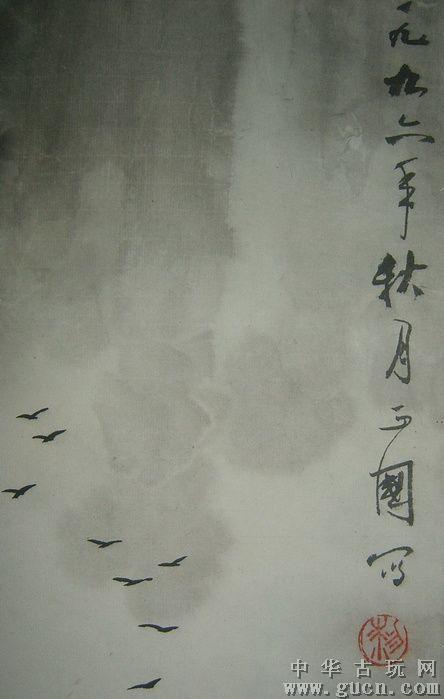 元九九六年秋月正國写
杉
中华古玩网
www.gucn.com